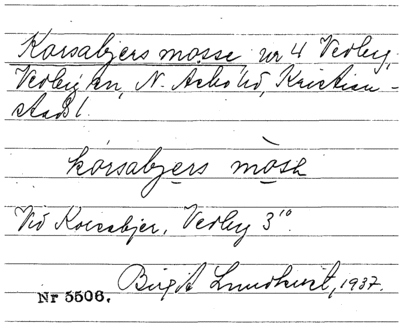 Korsabjers mosse, nr 4 Vedby,
Vedby sn, N. Åsbo hd, Kristian-
stads l.
kórsabjers mòsa
Vid Korsabjer, Vedby 3¹⁰.
Birgit Lundkvist, 1937.
Nr 5506.